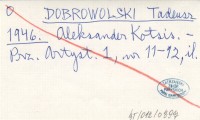 DOBROWOLSKI Tadeusz
1946. Aleksander Kotsis. -
Prz. Artyst. 1, nr 11-12, il.